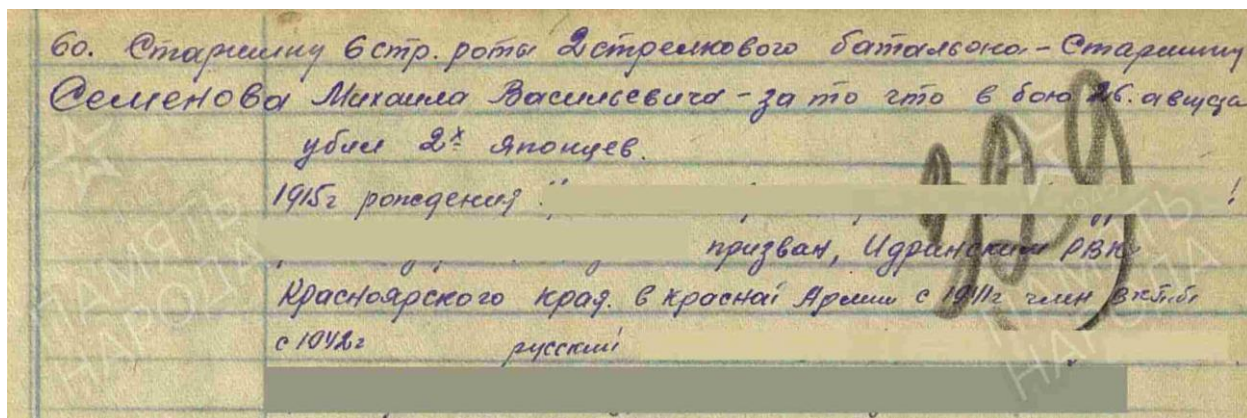 60. Старшину 6 стр. роты 2 стрелкового батальона - Старшину
Семенова Михаила Васильевича - за то что в бою 26. августа
убил 2х Японцев.
1915г рождения
призван, Идринским РВК
Красноярского края. в красной Армии с 1941г член ВКП.б.
с 1942г русский
309
ПАМЯТЬ
НАРОДА
ПАМЯТЬ
НАРОДА